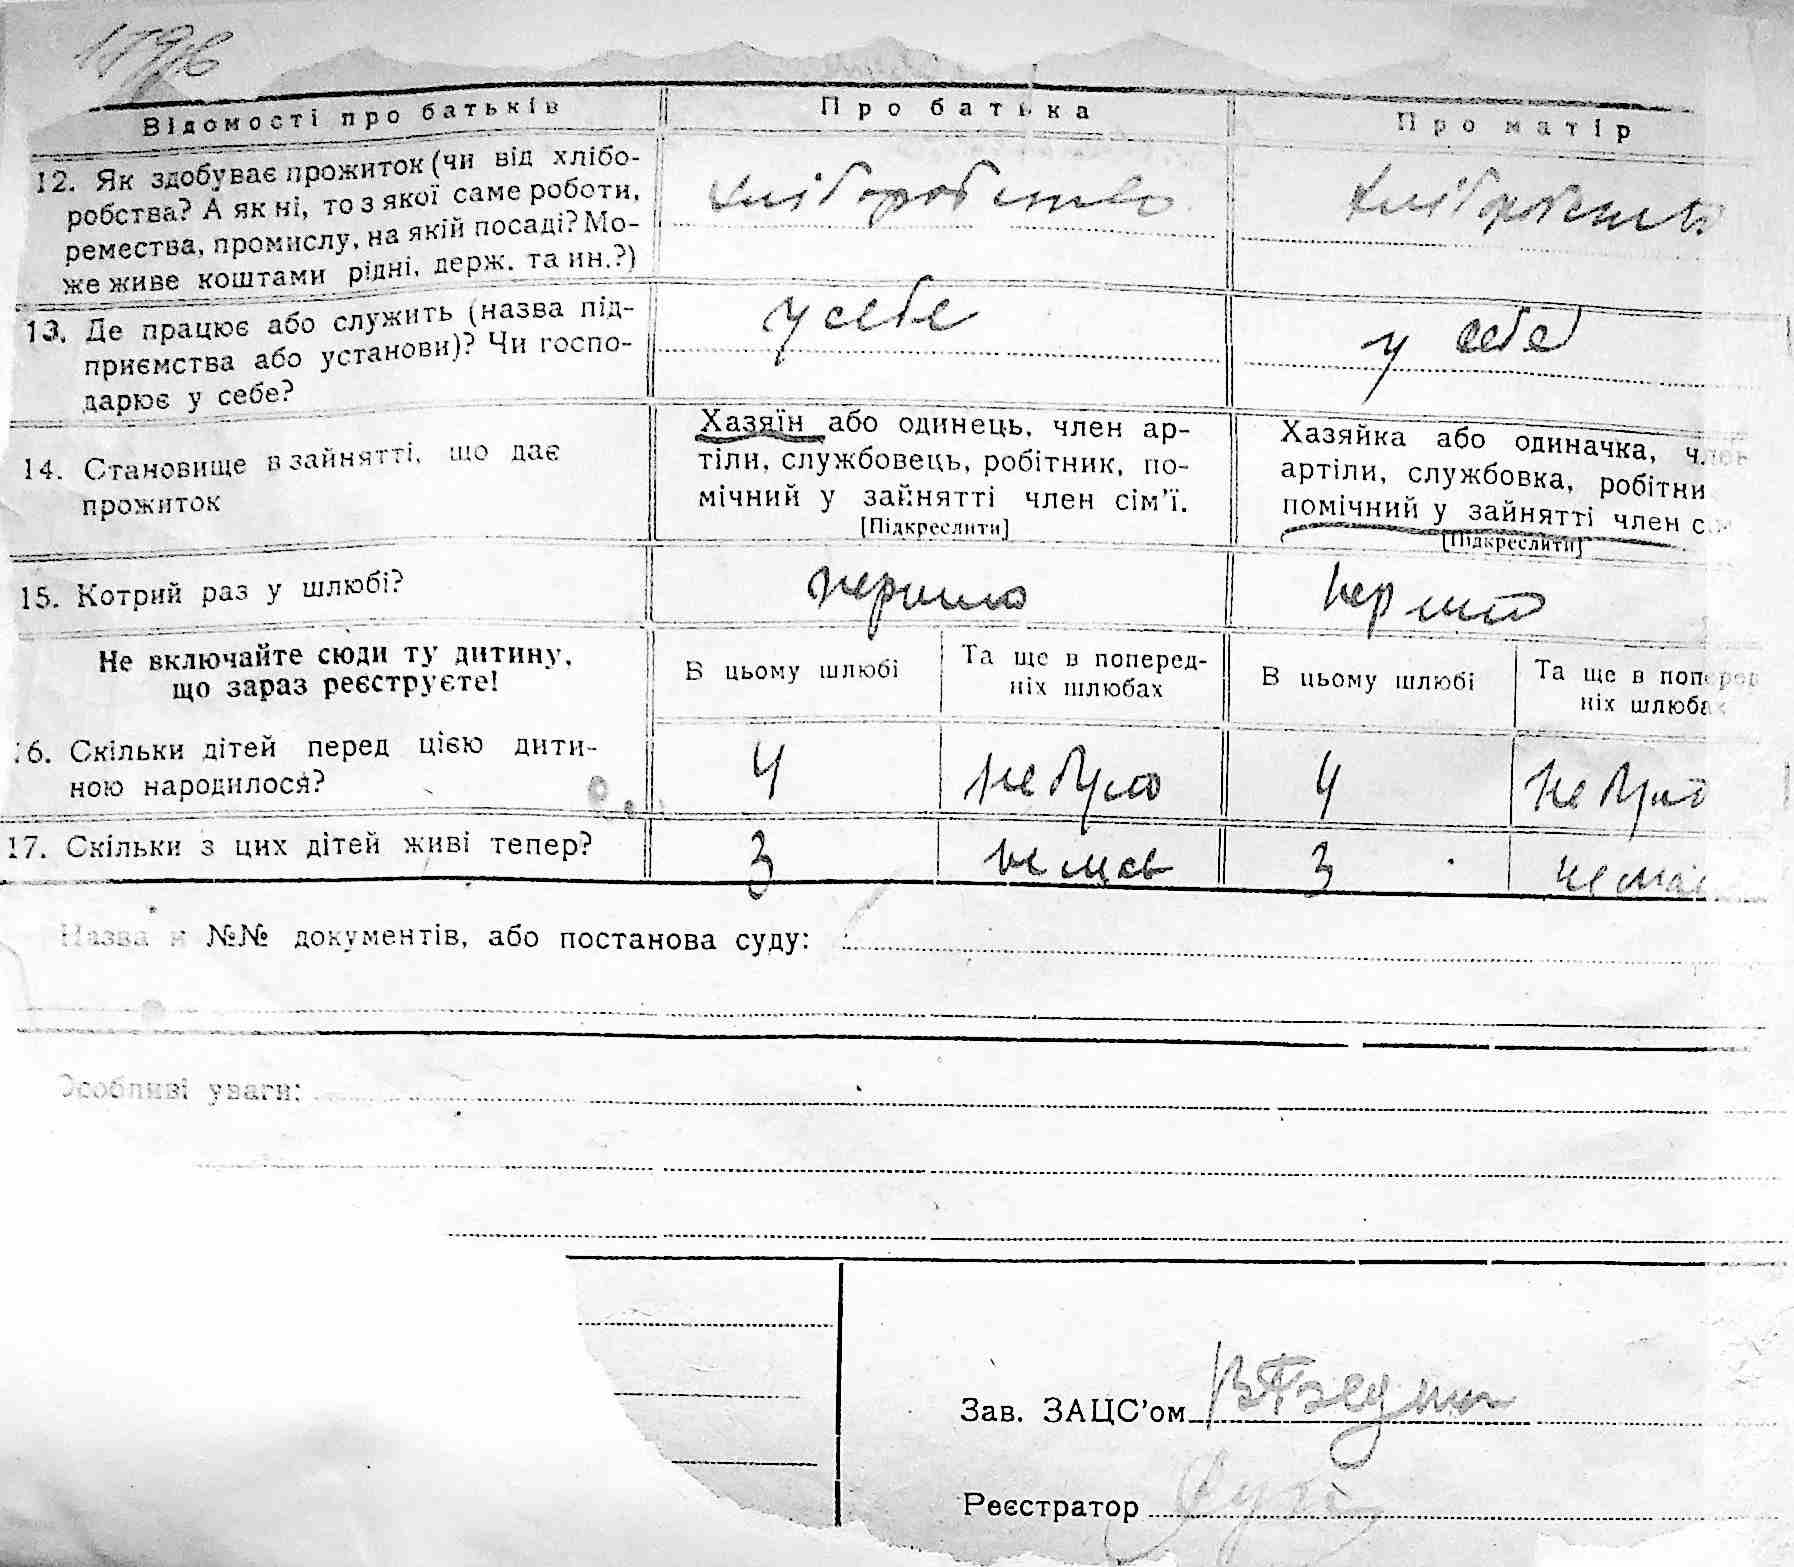 Відомості про батьків Про батька Про матір
12. Як здобуває прожиток (чи від хлібо-
робства? А як ні, то з якої саме роботи,
ремества, промислу, на якій посаді? Мо-
же живе коштами рідні, держ. та ин.?)
хліборобство хліборобство
13. Де працює або служить (назва під-
приємства або установи)? Чи госпо-
дарює у себе?
у себе у себе
14. Становище в зайнятті, що дає
прожиток
Хазяїн або одинець, член ар-
тіли, службовець, робітник, по-
мічний у зайнятті член сім'ї.
[Підкреслити]
Хазяйка або одиначка, член
артіли, службовка, робітни
помічний у зайнятті член с
[Підкреслити]
15. Котрий раз у шлюбі?
Не включайте сюди ту дитину,
що зараз реєструєте!
В цьому шлюбі Та ще в поперед-
ніх шлюбах
В цьому шлюбі Та ще в поперед
ніх шлюбах
16. Скільки дітей перед цією дити-
ною народилося?
4 не було 4 не було
17. Скільки з цих дітей живі тепер?
3 немає 3 немає
Назва и №№ документів, або постанова суду:
Особливі уваги:
Зав. ЗАЦС'ом
Реєстратор